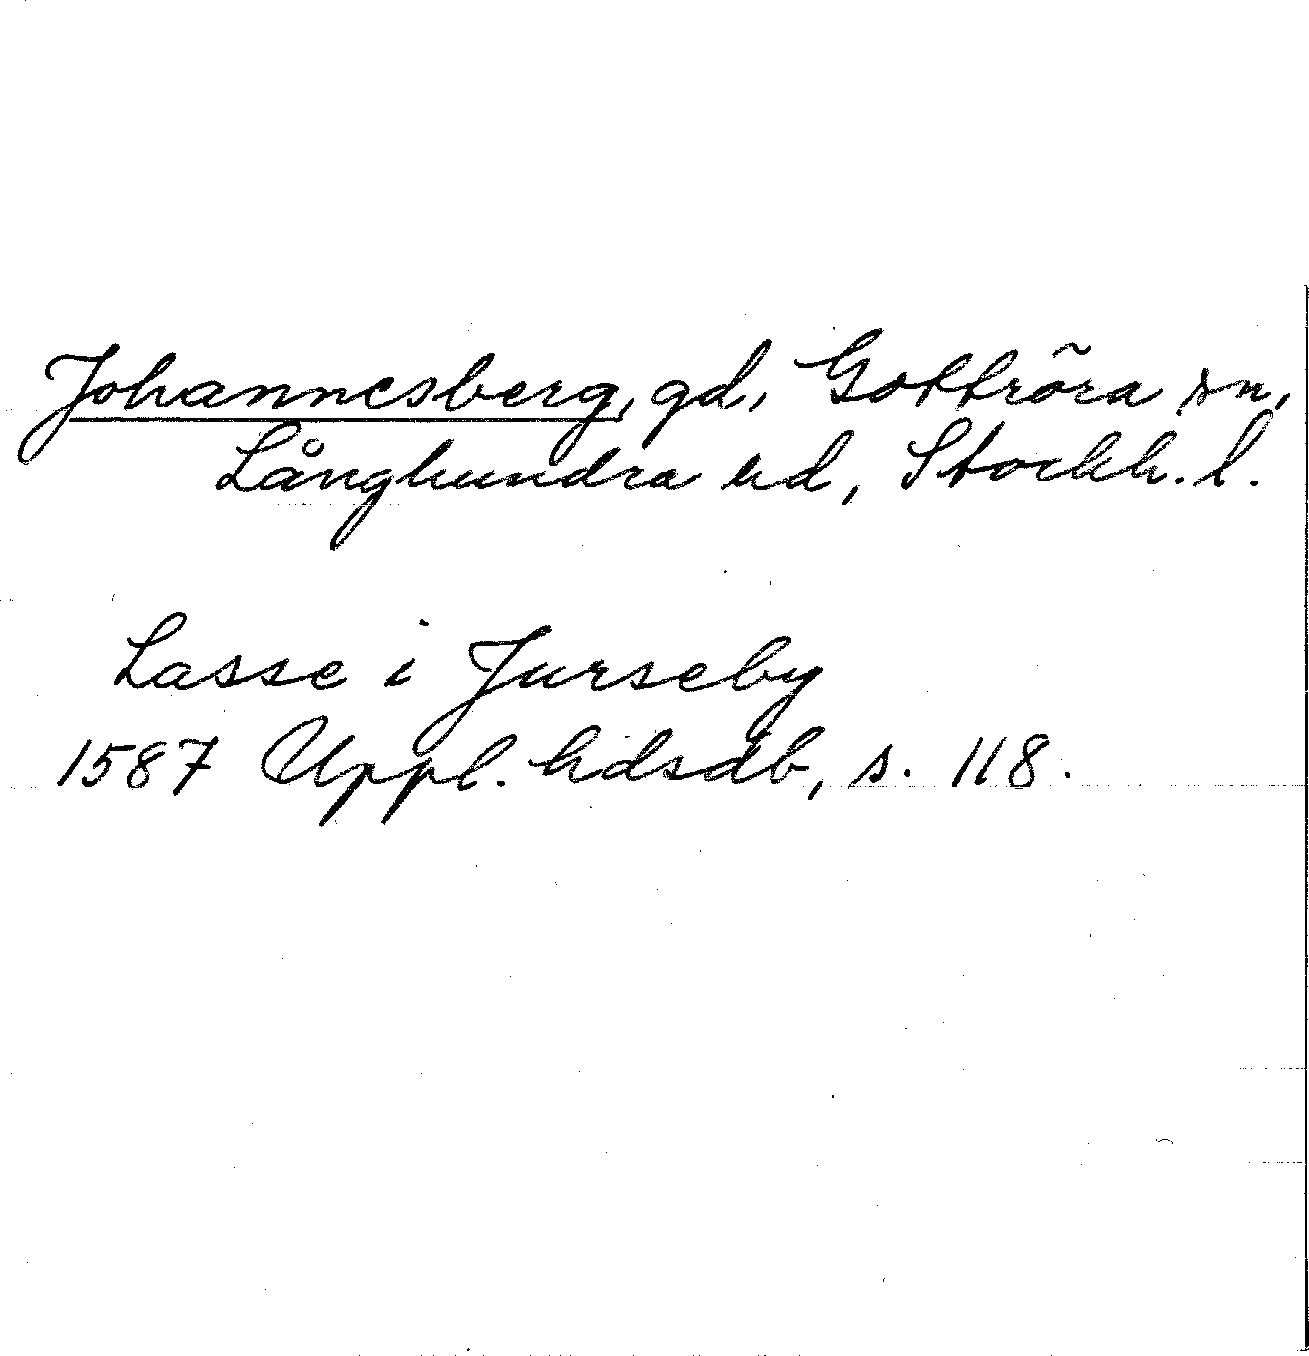 Johannesberg, gd, Gottröra sn,
Långhundra hd, Stockh. l.
Lasse i Jurseby
1587 Uppl. hdsdb, s. 118.